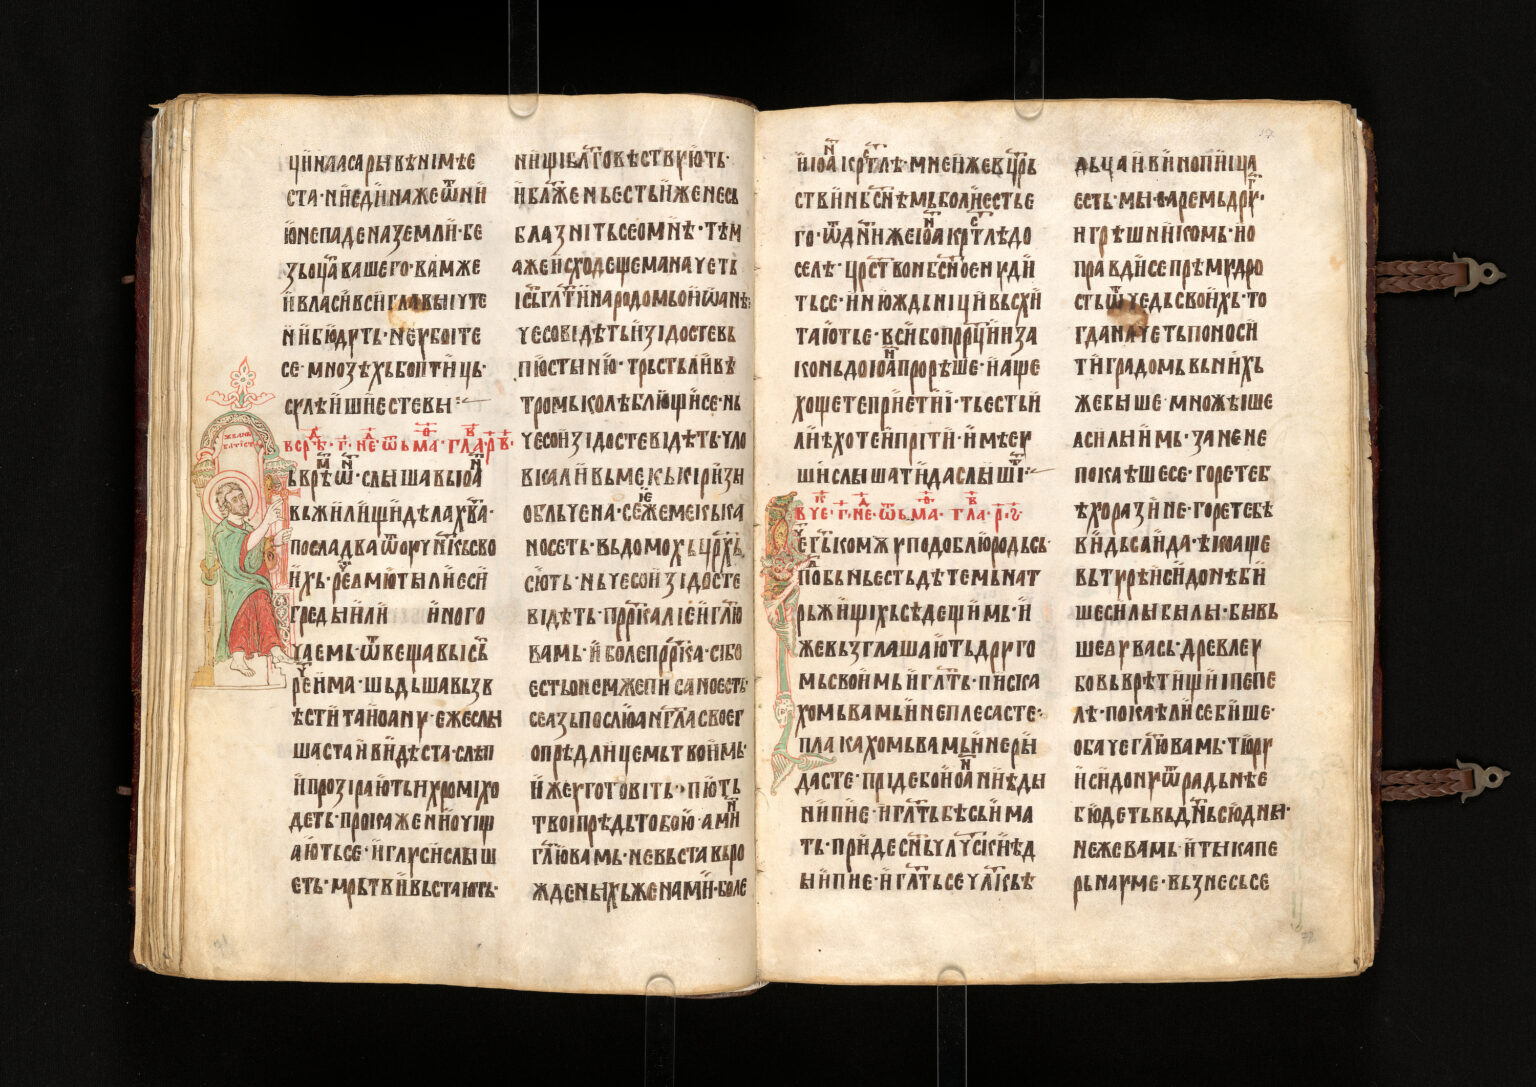 ЦИИ НА АСАРЫ ВЕНІМѢЕ
СТА· НИ ЕДИНА ЖЕ Ѿ НИ
Ю НЕ ПАДЕ НА ЗЕМЛИ· БЕ
ЗЬ ОЦА ВАШЕГО· ВАМ ЖЕ
И ВЛАСИ ВСИ ГЛАВЫ ІЧТЕ
НИ БЮДУТЬ· НЕ УБОИТЕ
СЕ· МНОЗѢХЬ БО ПТИЦЬ·
СУЛѢИШИ ЕСТЕ ВЫ:
В СРѢ· Г· НЕ Ѿ МА· ГЛА· РВ·
ЬВРѢѠ· СЛЫШАВЬ ІОА
ВЬ ЖИЛИЩИ ДѢЛА ХВА·
ПОСЛА ДВА Ѿ ОУЧНКЬ СВО
ИХЬ· РЕЧЕ ЛМЮ ТЫ ЛИ ЕСИ
ГРЕДЫИ ЛИ ИНОГО
ЧАЕМЬ· ѾВЕЩАВЬ ІСЬ
РЧЕ ИМА· ШЬДЬША ВЬЗВ
ѢСТИТА ИОАНУ· ЕЖЕ СЛЫ
ШАСТА И ВИДѢСТА· СЛѢП
И ПРОЗІРАЮТЬ И ХРОМІ ХО
ДЕТЬ· ПРОКАЖЕНИ ОЧІЩ
АЮТЬСЕ· И ГЛУСИ СЛЫШ
ЕТЬ· МРЬТВИ ВЬСТАЮТЬ·
НИЩІ БЛГОВѢСТВУЮТЬ·
И БЛЖЕНЬ ЕСТЬ ИЖЕ НЕ СЬ
БЛАЗНІТЬСЕ О МНѢ· ТѢМ
А ЖЕ ИСХОДЕЩЕМА НАЧЕТЬ
ІСЬ ГЛТИ НАРОДОМЬ О ИѠАНѢ
ЧЕСО ВІДѢТЬ ИЗІДОСТЕ ВЬ
ПЮСТЫНЮ· ТРЬСТЬ ЛИ ВѢ
ТРОМЬ КОЛѢБЛЮЩИСЕ· НЬ
ЧЕСО ИЗІДОСТЕ ВІДѢТЬ· ЧЛО
ВІКА ЛИ ВЬ МЕКЬКІ РИЗЫ
ОБЛЬЧЕНА· СЕ ІЖЕ МЕКЬКА
НОСЕТЬ· ВЬ ДОМОХЬ ЦРХЬ
СЮТЬ· НЬ ЧЕСО ИЗІДОСТЕ
ВІДѢТЬ· ПРРКА ЛІ ЕИ ГЛЮ
ВАМЬ· И БОЛЕ ПРРКА· СІ БО
ЕСТЬ О НЕМЖЕ ПИСАНО ЕСТЬ·
СЕ АЗЬ ПОСЛЮ АНГЛА СВОЕГ
О ПРѢД ЛИЦЕМЬ ТВОИМЬ·
ИЖЕ УГОТОВІТЬ ПЮТЬ
ТВОІ ПРѢДЬ ТОБОЮ· АМИН
ГЛЮ ВАМЬ· НЕ ВЬСТА ВЬ РО
ЖДЕНЫХЬ ЖЕНАМИ· БОЛЕ
И ІОА КРТЛѢ· МНЕИ ЖЕ В ЦРЬ
СТВИ НБСНѢМЬ БОЛИ ЕСТЬ Е
ГО· Ѿ ДНИ ЖЕ ІОА КРТЛѢ ДО
СЕЛѢ· ЦРСТВО НБСНОЕ НУДИ
ТЬСЕ· И НЮЖДЬНІЦИ ВЬСХИ
ТАЮТЬ Е· ВСИ БО ПРРЦИ И ЗА
КОНЬ ДО ІОА ПРОРѢШЕ· И АЩЕ
ХОЩЕТЕ ПРИЕТИ І· ТЬ ЕСТЬ И
ЛИѢ ХОТЕИ ПРІТИ· ИМѢЕУ
ШИ СЛЫШАТИ ДА СЛЫШІТ
В ЧЕ· Г· НЕ· Ѿ МА· ГЛА· РГ
ЕГЫ КОМЖУ ПОДОБЛЮ РОДЬ СЬ·
ПОБЬНЬ ЕСТЬ ДѢТЕМЬ НА Т
РЬЖИЩІХЬ СѢДЕЩИМЬ· И
ЖЕ ВЬЗГЛАШАЮТЬ ДРУГО
МЬ СВОИМЬ И ГЛТЬ· ПИСКА
ХОМЬ ВАМЬ И НЕ ПЛЕСАСТЕ·
ПЛАКАХОМЬ ВАМЬ И НЕ РЫ
ДАСТЕ· ПРІДЕ БО ИОА НИ ѢДЫ
НИ ПИЕ· И ГЛТЬ БѢСЬ ИМА
ТЬ· ПРИДЕ СНЬ ЧЛЧСКИ ѢД
Ы И ПИЕ· И ГЛТЬ СЕ ЧЛКЬ Ѣ
ДЬЦА И ВИНОПИЦА
ЕСТЬ· МЫТАРЕМЬ ДРУГ·
И ГРѢШНИКОМЬ· И О
ПРАВДИСЕ ПРѢМУДРО
СТЬ Ѿ ЧЕДЬ СВОИХЬ· ТО
ГДА НАЧЕТЬ ПОНОСИ
ТИ ГРАДОМЬ ВЬ НИХЬ
ЖЕ БЫШЕ МНОЖѢІШЕ
А СИЛЫ ИМЬ· ЗАНЕ НЕ
ПОКАѢШЕСЕ· ГОРЕ ТЕБ
Ѣ ХОРАЗИНЕ· ГОРЕ ТЕБѢ
ВИДЬСАИДА· ѢКО АЩЕ
ВЬ ТУРѢ И СИДОНѢ БИ
ШЕ СИЛЫ БЫЛЫ· БЫВЬ
ШЕ ДУ ВАСЬ· ДРЕВЛЕ У
БО ВЬ ВРѢТИЩИ І ПЕПЕ
ЛѢ· ПОКАѢЛИСЕ БИШЕ·
ОБАЧЕ ГЛЮ ВАМЬ· ТЮРУ
И СИДОНУ ѾРАДЬНѢЕ
БЮДЕТЬ ВЬ ДНЬ СЮДНЫ·
НЕЖЕ ВАМЬ· И ТЫ КАПЕ
РЬНАУМЕ· ВЬЗНЕСЬСЕ